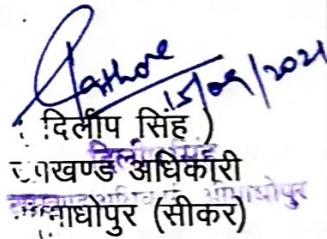 Rathore
15/09/2021
दिलीप सिंह )
दिलीप सिंह
खण्ड अधिकारी
माधोपुर (सीकर)